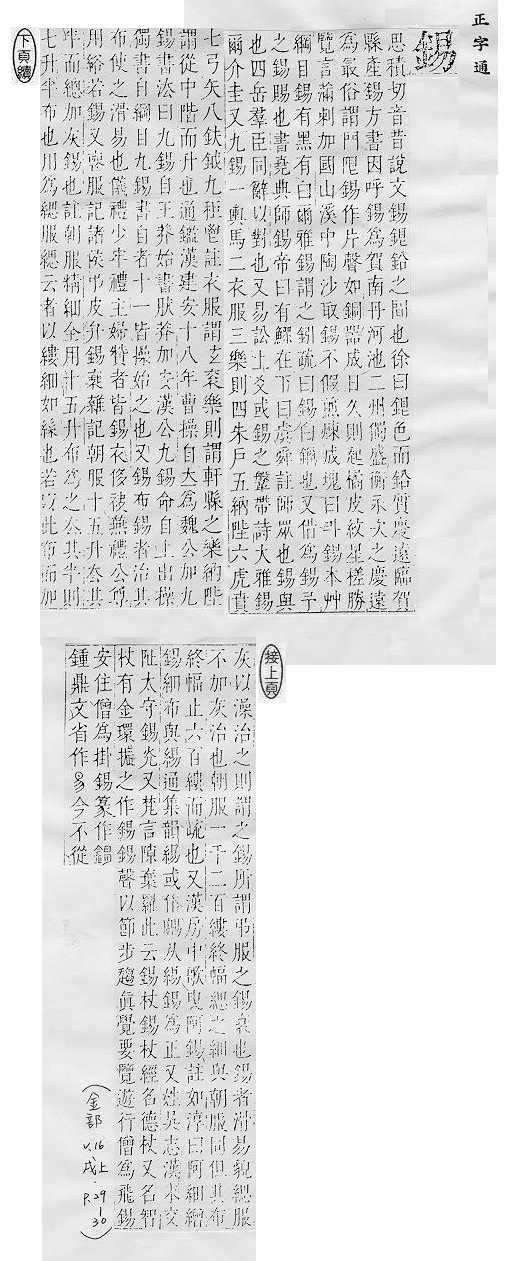 正字通
錫
思積切音昔說文錫鈏鉛之間也徐曰鈏色而鉛質慶遠臨賀
縣產錫方書因呼錫為賀南丹河池二州獨盛衡永次之慶遠
為最俗謂門限錫作片聲如銅器成日久則起橘皮紋星槎勝
覽言滿剌加國山溪中陶沙取錫不假煎煉成塊曰斗錫本艸
綱目錫有黑有白爾雅錫謂之鈏疏曰錫白鑞也又借為錫予
之錫賜也書堯典師錫帝曰有鰥在下曰虞舜註師眾也錫與
也四岳羣臣同辭以對也又易訟上爻或錫之鞶帶詩大雅錫
爾介圭又九錫一輿馬二衣服三樂則四朱戶五納陛六虎賁
七弓矢八鈇鉞九秬鬯註衣服謂玄袞樂則謂軒縣之樂納陛
謂從中階而升也通鑑漢建安十八年曹操自立為魏公加九
錫書法曰九錫自王莽始書肰莽加安漢公九錫命自上出操
獨書自綱目九錫書自者十一皆操始之也又錫布錫者治其
布使之滑易也儀禮少牢禮主婦特者皆錫衣侈袂燕禮公尊
用綌若錫又喪服記諸侯弔皮弁錫衰雜記朝服十五升去其
半而緦加灰錫也註朝服精細全用十五升布為之去其半則
七升半布也用為緦服緦云者以縷細如絲也若以此布而加
下頁續
接上頁
灰以澡治之則謂之錫所謂弔服之錫衰也錫者滑易貌緦服
不加灰治也朝服一千二百縷終幅緦之細與朝服同但其布
終幅止六百縷而疏也又漢房中歌曳阿錫註如淳曰阿細繒
錫細布與緆通集韻緆或作錫从緆錫為正又姓吳志漢末交
阯太守錫光又梵言隙棄羅此云錫杖錫杖經名德杖又名智
杖有金環振之作錫錫聲以節步趨眞覺要覽遊行僧為飛錫
安住僧為掛錫篆作錫
鍾鼎文省作易今不從
(金部 v.16 戌上 P.29-30)